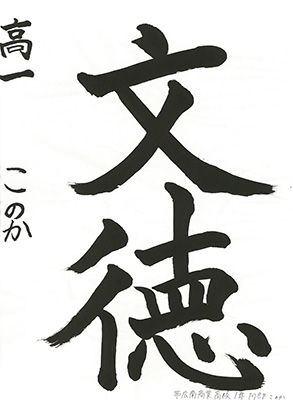 文徳
高一 このか
帯広南商業高校 1年 阿部 このか